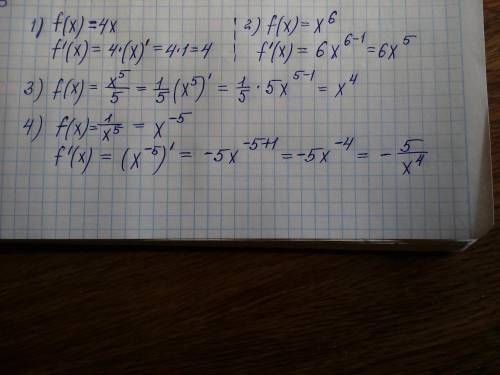 1) f(x)=4x
f'(x) = 4·(x)' = 4·1=4
2) f(x)= x^6
f'(x) = 6x^{6-1} = 6x^5
3) f(x) = x^5/5 = 1/5 (x^5)' = 1/5 · 5x^{5-1} = x^4
4) f(x)= 1/x^5 = x^{-5}
f'(x) = (x^{-5})' = -5x^{-5+1} = -5x^{-4} = - 5/x^4